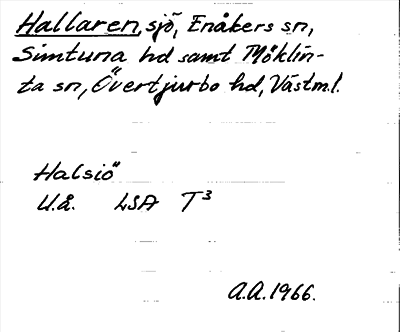 Hallaren, sjö, Enåkers sn,
Simtuna hd samt Möklin-
ta sn, Övertjurbo hd, Västml.
Halsiö
U.å. LSA T³
A.A. 1966.